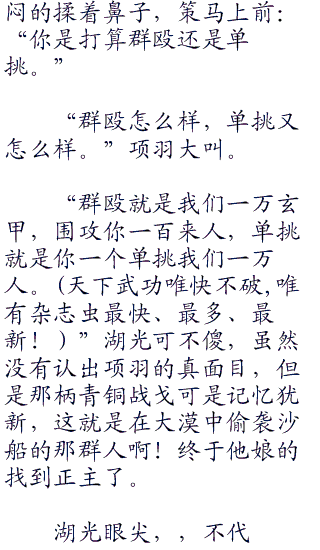 闷的揉着鼻子，策马上前：
“你是打算群殴还是单
挑。”
“群殴怎么样，单挑又
怎么样。”项羽大叫。
“群殴就是我们一万玄
甲，围攻你一百来人，单挑
就是你一个单挑我们一万
人。(天下武功唯快不破,唯
有杂志虫最快、最多、最
新！)”湖光可不傻，虽然
没有认出项羽的真面目，但
是那柄青铜战戈可是记忆犹
新，这就是在大漠中偷袭沙
船的那群人啊！终于他娘的
找到正主了。
湖光眼尖，，不代